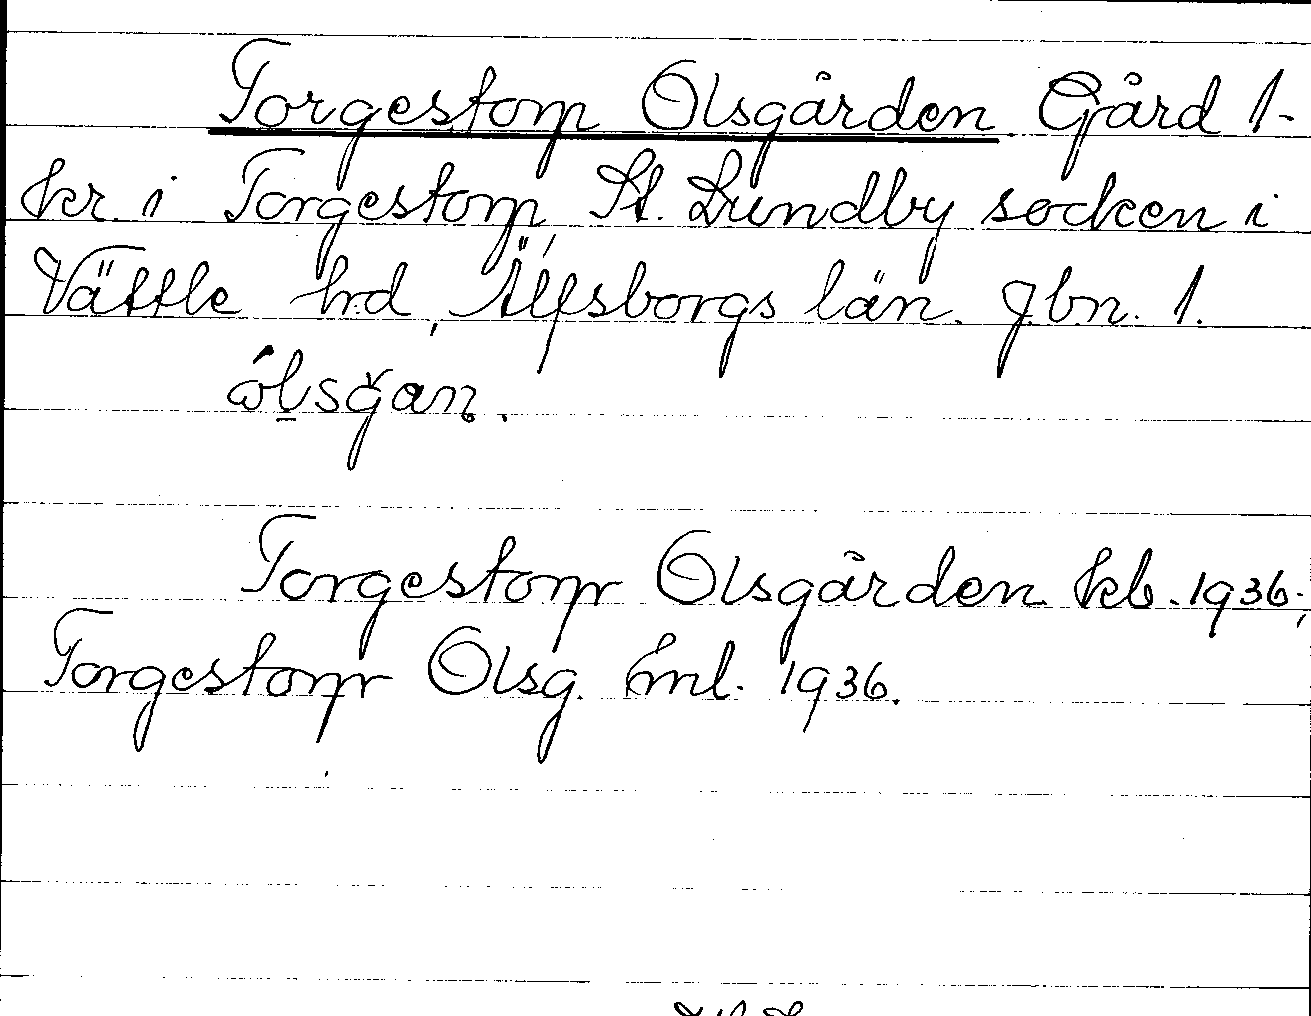 Torgestorp Olsgården. Gård 1-
kr. i Torgestorp, St. Lundby socken i
Vättle hd, Älfsborgs län. Jbn. 1.
ólsǧan.
Torgestorp Olsgården kb. 1936;
Torgestorp Olsg. Eml. 1936.